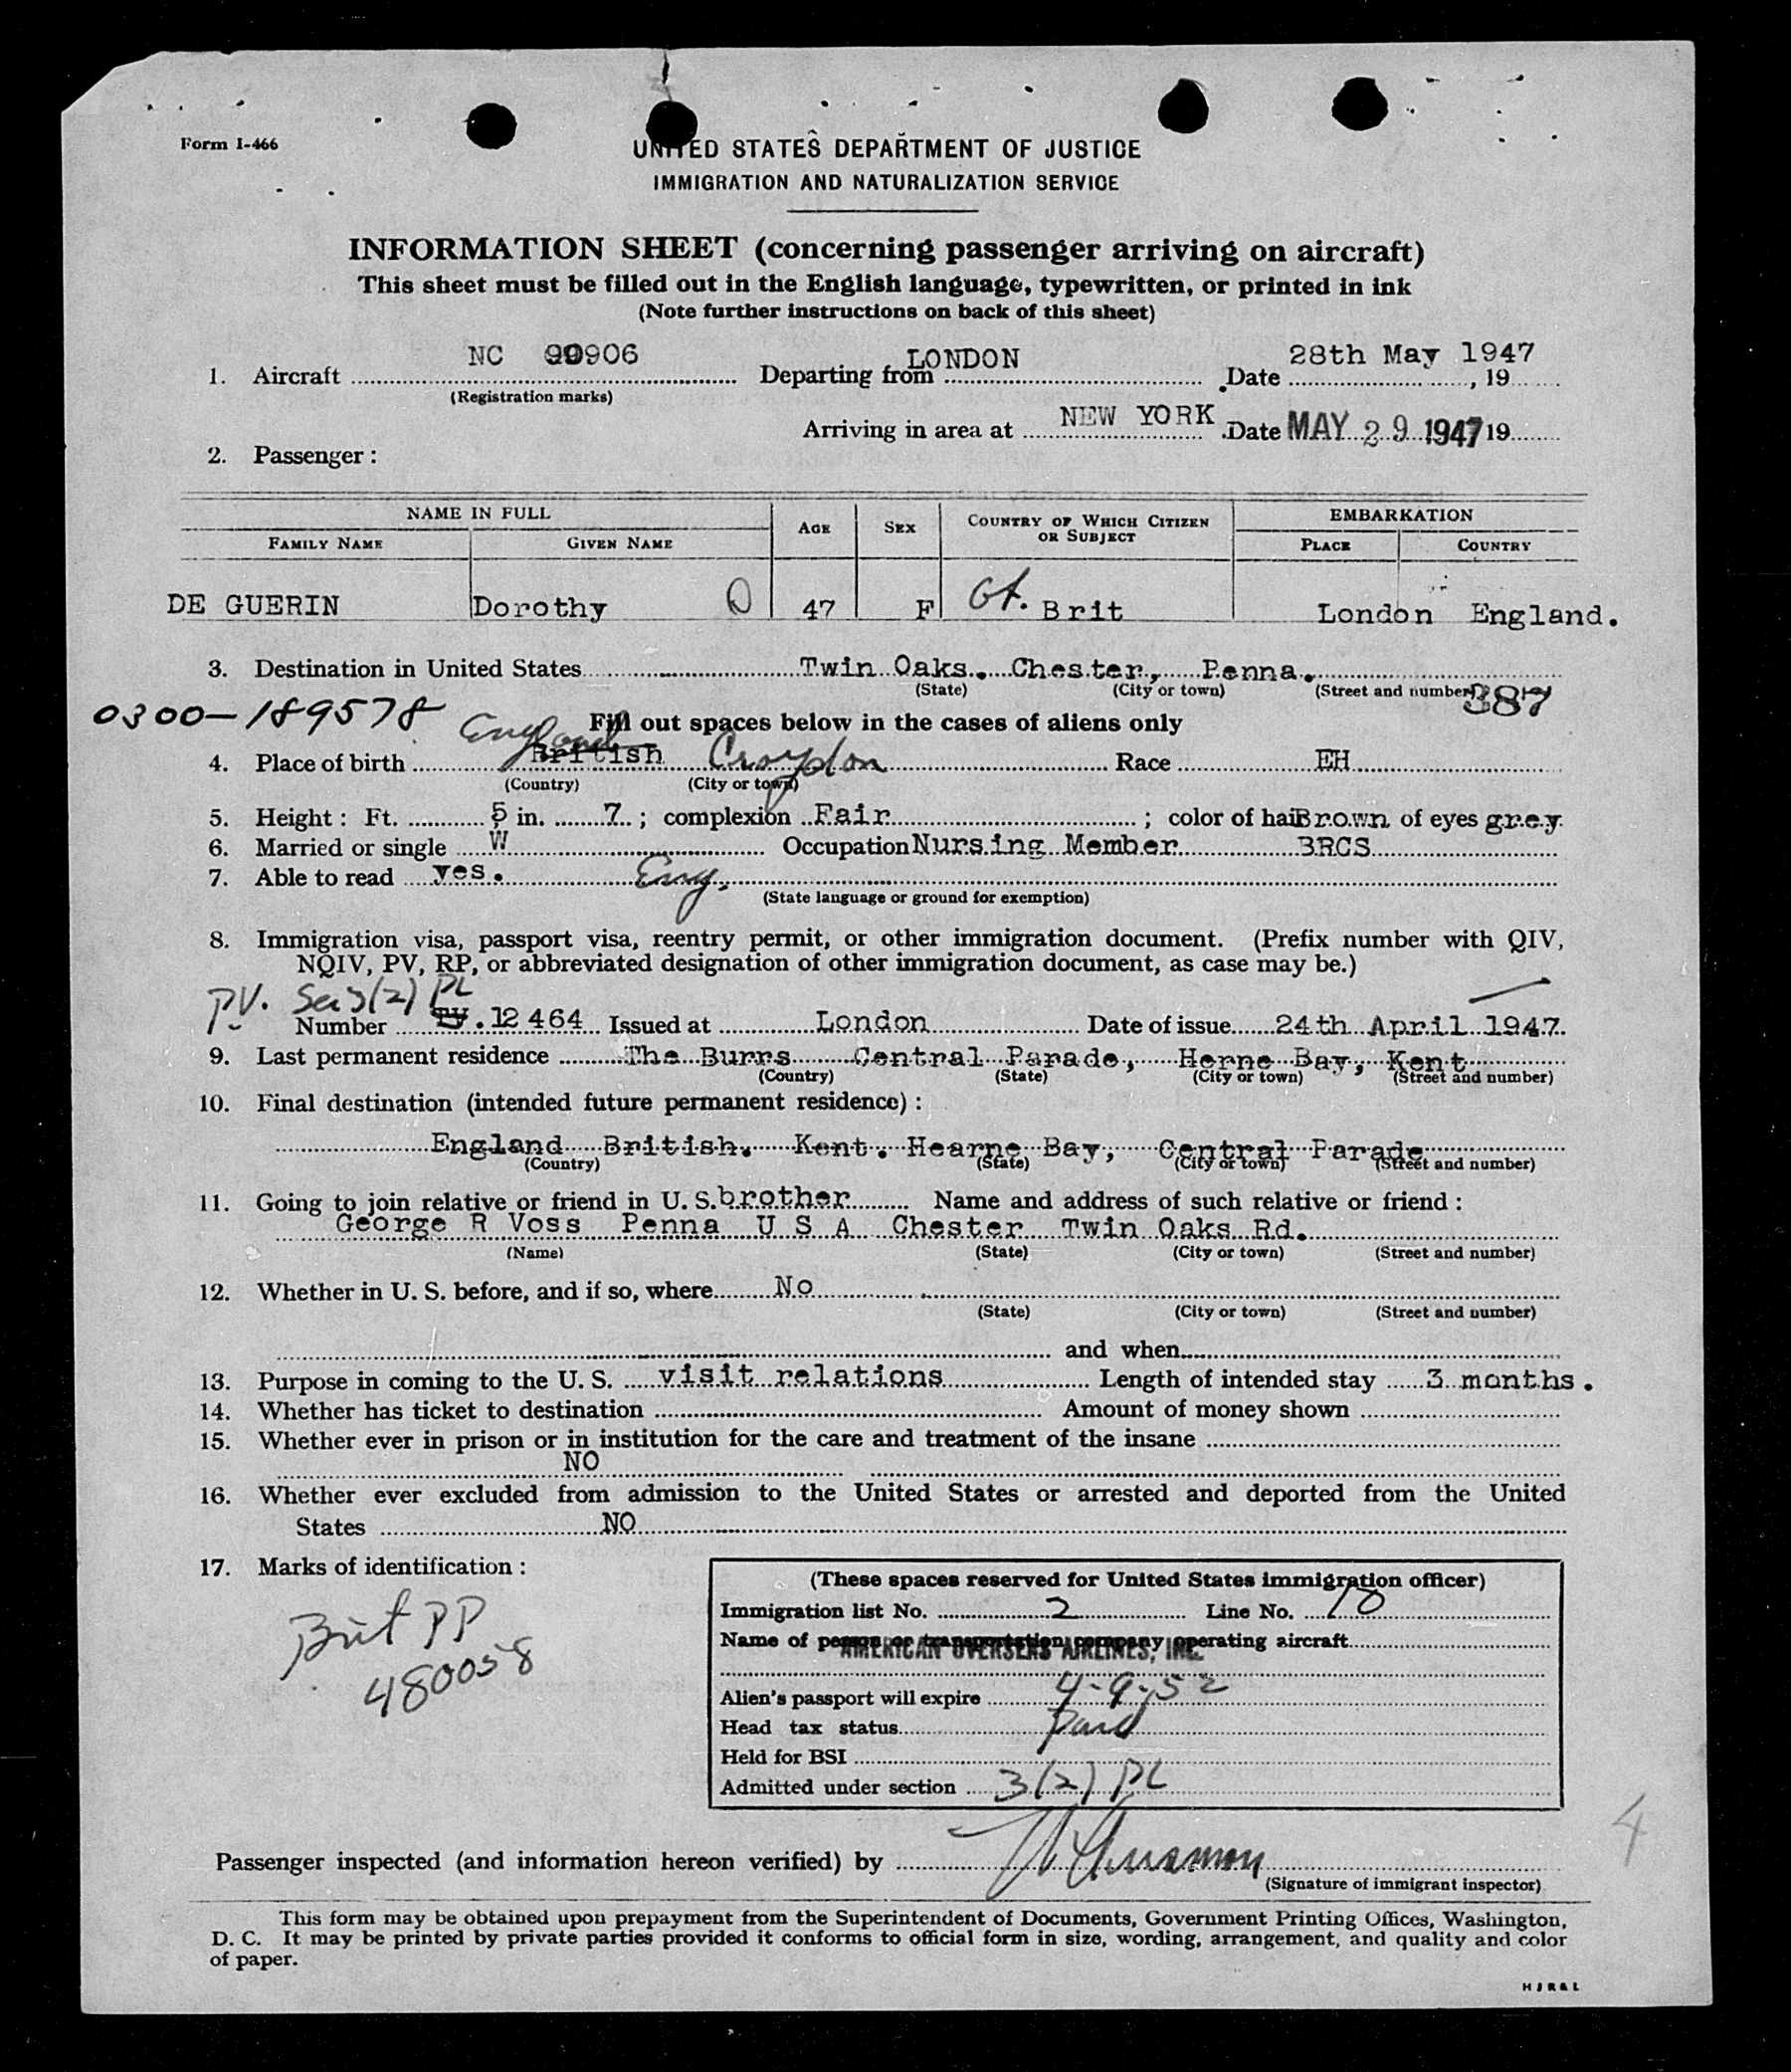 Form I-466
UNITED STATES DEPARTMENT OF JUSTICE
IMMIGRATION AND NATURALIZATION SERVICE
INFORMATION SHEET (concerning passenger arriving on aircraft)
This sheet must be filled out in the English language, typewritten, or printed in ink
(Note further instructions on back of this sheet)
1. Aircraft NC 90906 Departing from LONDON Date 28th May 1947, 19
(Registration marks)
Arriving in area at NEW YORK Date MAY 29 1947 19
2. Passenger:
NAME IN FULL AGE SEX COUNTRY OF WHICH CITIZEN OR SUBJECT EMBARKATION
FAMILY NAME GIVEN NAME PLACE COUNTRY
DE GUERIN Dorothy 47 F Gt. Brit London England.
3. Destination in United States Twin Oaks. Chester, Penna.
(State) (City or town) (Street and number)
387
0300-189578 Fill out spaces below in the cases of aliens only
4. Place of birth England British Croydon Race EH
(Country) (City or town)
5. Height: Ft. 5 in. 7; complexion Fair; color of hair Brown of eyes grey
6. Married or single W Occupation Nursing Member BRCS
7. Able to read yes. Eng.
(State language or ground for exemption)
8. Immigration visa, passport visa, reentry permit, or other immigration document. (Prefix number with QIV,
NQIV, PV, RP, or abbreviated designation of other immigration document, as case may be.)
PV. Sec 3(2) PL
Number PV. 12464 Issued at London Date of issue 24th April 1947.
9. Last permanent residence The Burrs Central Parade, Herne Bay, Kent
(Country) (State) (City or town) (Street and number)
10. Final destination (intended future permanent residence):
England British. Kent. Hearne Bay, Central Parade
(Country) (State) (City or town) (Street and number)
11. Going to join relative or friend in U. S. brother Name and address of such relative or friend:
George R Voss Penna U S A Chester Twin Oaks Rd.
(Name) (State) (City or town) (Street and number)
12. Whether in U. S. before, and if so, where No
(State) (City or town) (Street and number)
and when
13. Purpose in coming to the U. S. visit relations Length of intended stay 3 months.
14. Whether has ticket to destination Amount of money shown
15. Whether ever in prison or in institution for the care and treatment of the insane
NO
16. Whether ever excluded from admission to the United States or arrested and deported from the United
States NO
17. Marks of identification:
Brit PP
480058
(These spaces reserved for United States immigration officer)
Immigration list No. 2 Line No. 10
Name of person or transportation company operating aircraft
AMERICAN OVERSEAS AIRLINES, INC.
Alien's passport will expire 4-9-52
Head tax status Paid
Held for BSI
Admitted under section 3(2) PL
4
Passenger inspected (and information hereon verified) by
(Signature of immigrant inspector)
This form may be obtained upon prepayment from the Superintendent of Documents, Government Printing Offices, Washington,
D. C. It may be printed by private parties provided it conforms to official form in size, wording, arrangement, and quality and color
of paper.
H J R & L